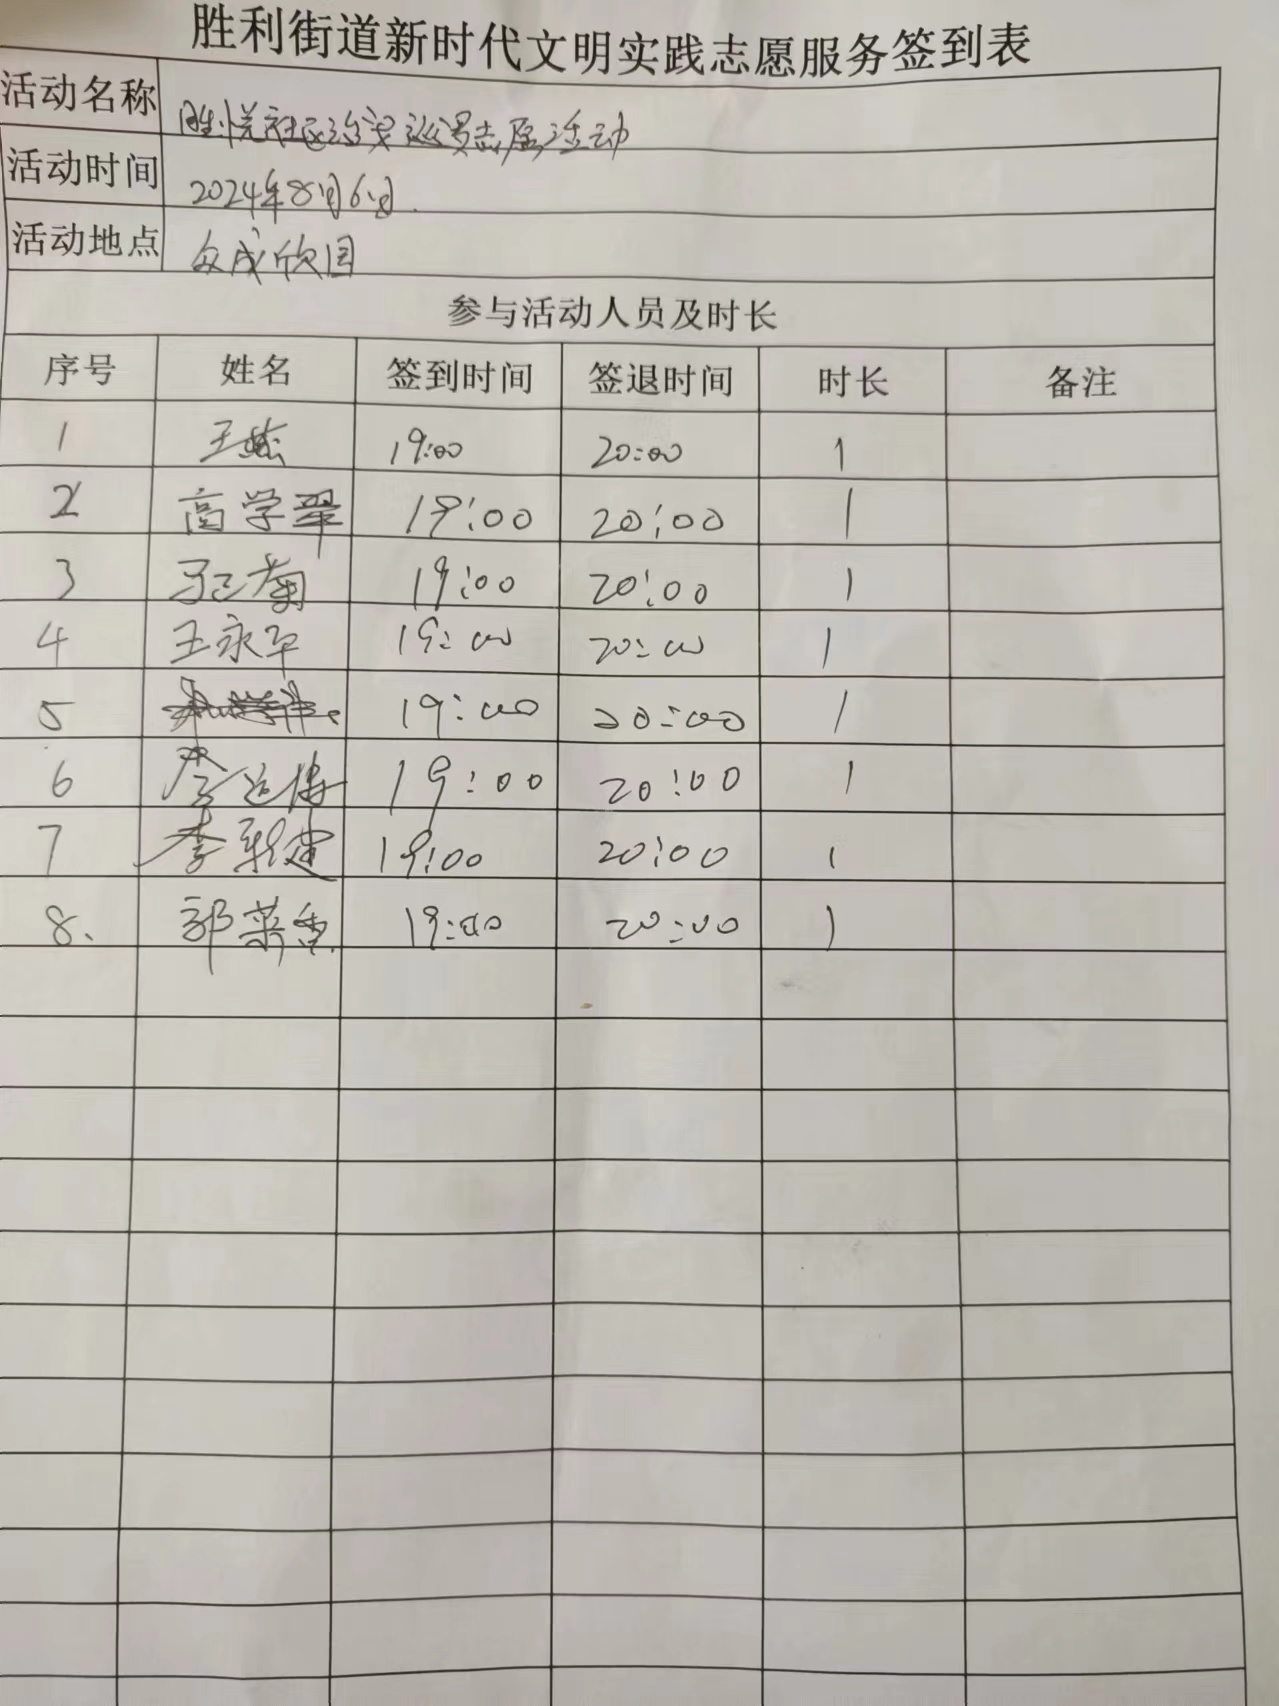 胜利街道新时代文明实践志愿服务签到表
活动名称 胜悦社区治安巡逻志愿活动
活动时间 2024年8月6日.
活动地点 众成欣园
参与活动人员及时长
序号 姓名 签到时间 签退时间 时长 备注
1 王 19:00 20:00 1
2 高学翠 19:00 20:00 1
3 菊 19:00 20:00 1
4 王永平 19:00 20:00 1
5 19:00 20:00 1
6 李 19:00 20:00 1
7 李 建 19:00 20:00 1
8、 郭 香 19:00 20:00 1